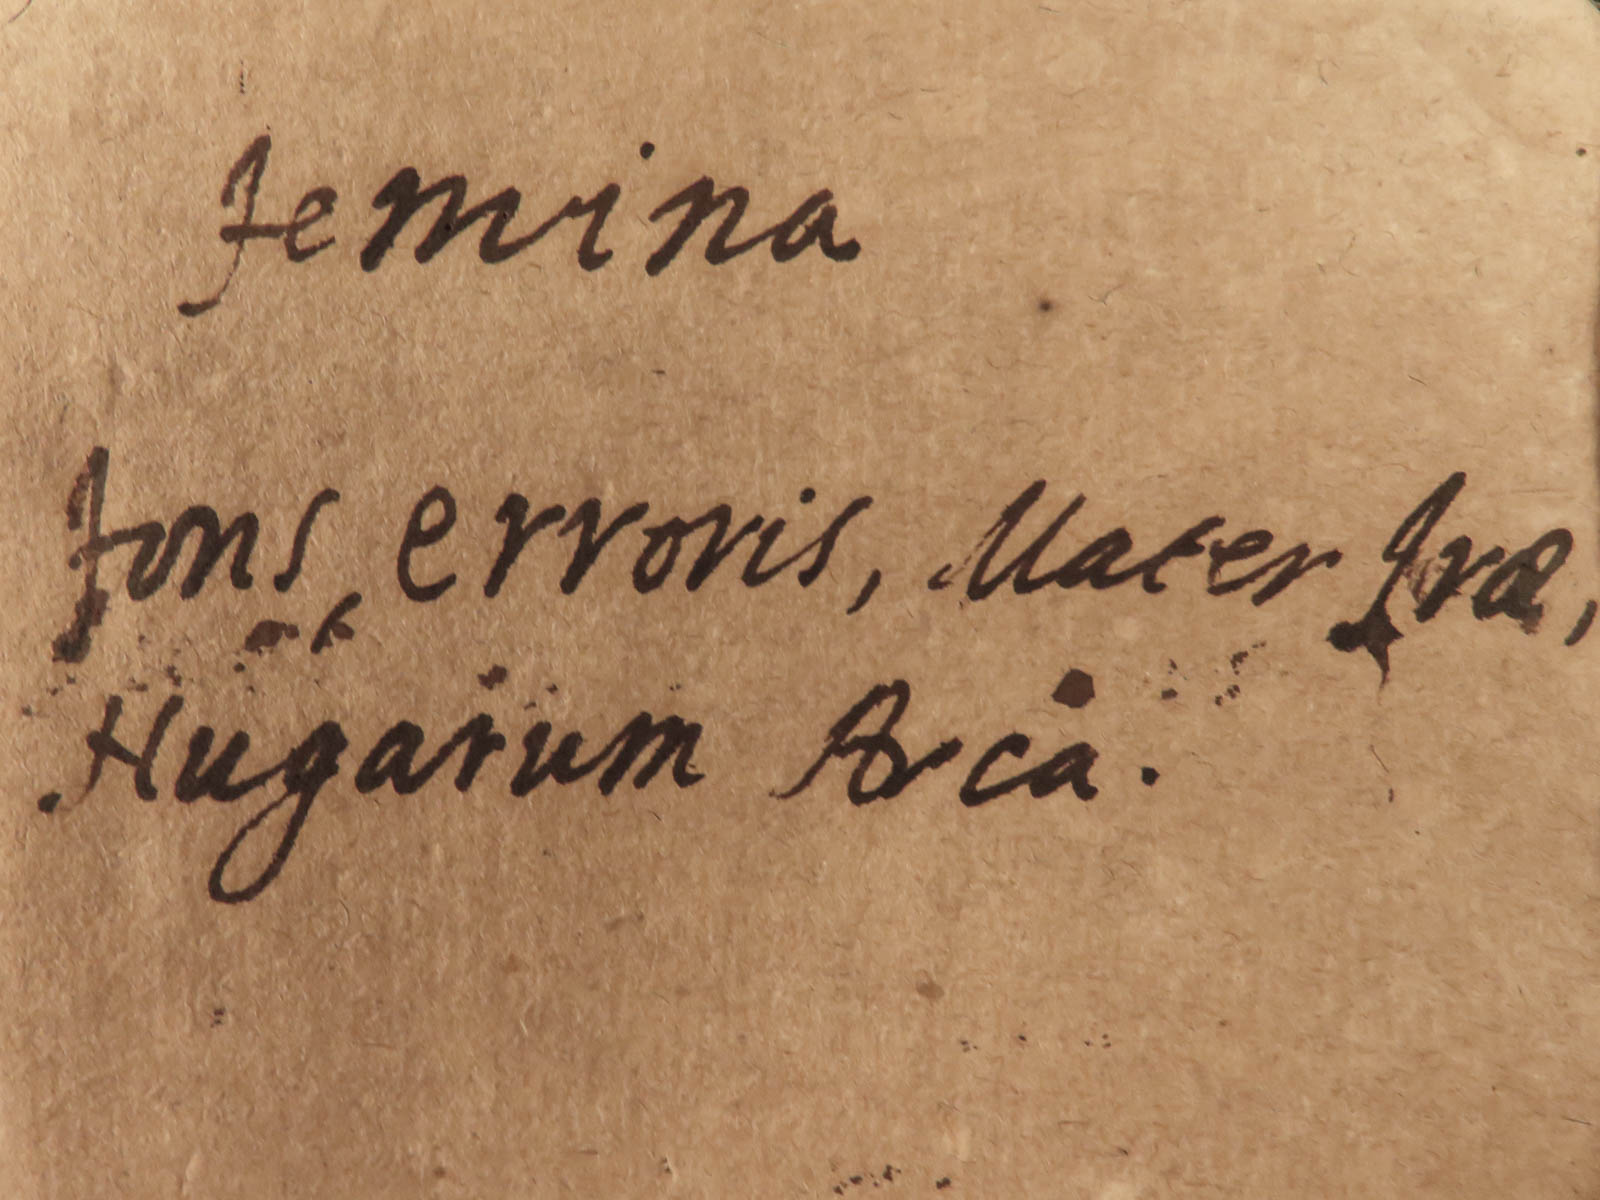 femina
fons erroris, Mater Iræ,
Nugarum Arca.